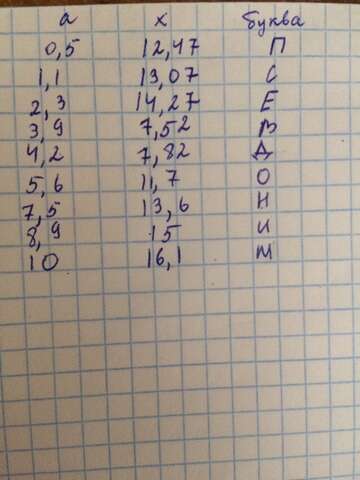 а х буква
0,5 12,47 П
1,1 13,07 С
2,3 14,27 Е
3,9 7,52 В
4,2 7,82 Д
5,6 11,7 О
7,5 13,6 Н
8,9 15 И
10 16,1 М